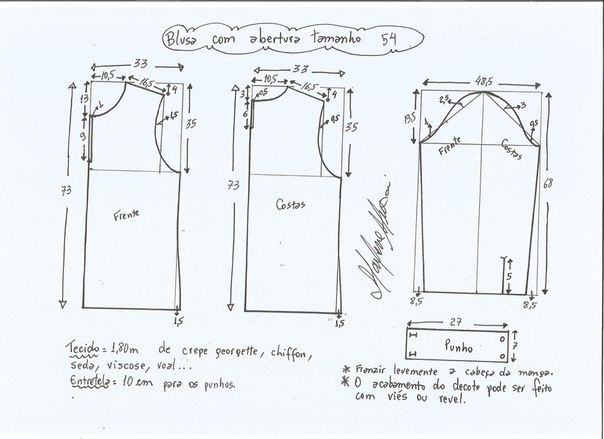 Blusa com abertura tamanho 54
33
10,5
16,5
4
13
1
1,5
9
35
73
Frente
1,5
33
10,5
16,5
3
0,5
4
6
1,5
35
73
Costas
1,5
48,5
19,5
2,5
3
1
0,5
Frente
Costas
68
5
8,5
8,5
27
Punho
7
Tecido = 1,80m de crepe georgette, chiffon,
seda, viscose, voal...
Entretela = 10 cm para os punhos.
* Franzir levemente a cabeça da manga.
* O acabamento do decote pode ser feito
com viés ou revel.